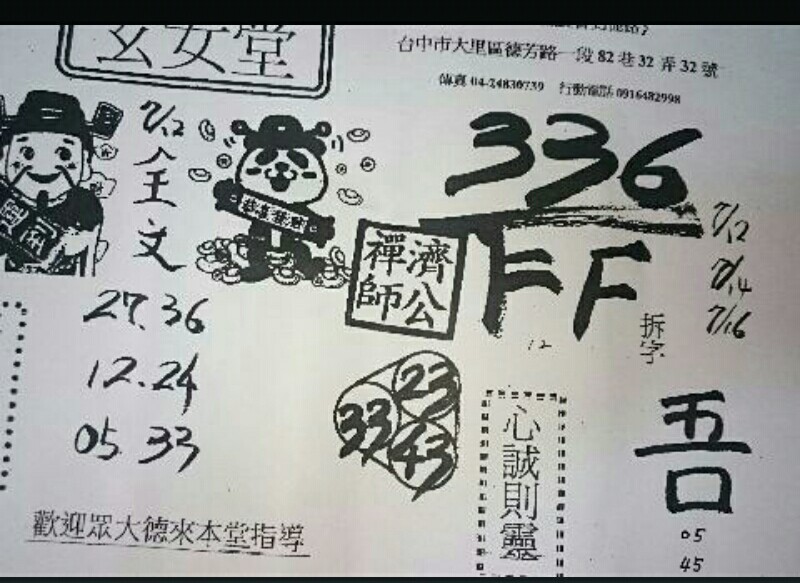 玄女堂
台中市大里區德芳路一段82巷32弄32號
傳真 04-24830739 行動電話 0916482998
7/12
全文
恭喜發財
27.36
12.24
05 33
歡迎眾大德來本堂指導
336
FF
12
濟公
禪師
7/12
7/14
7/16
拆字
23
33
43
心誠則靈
吾
05
45